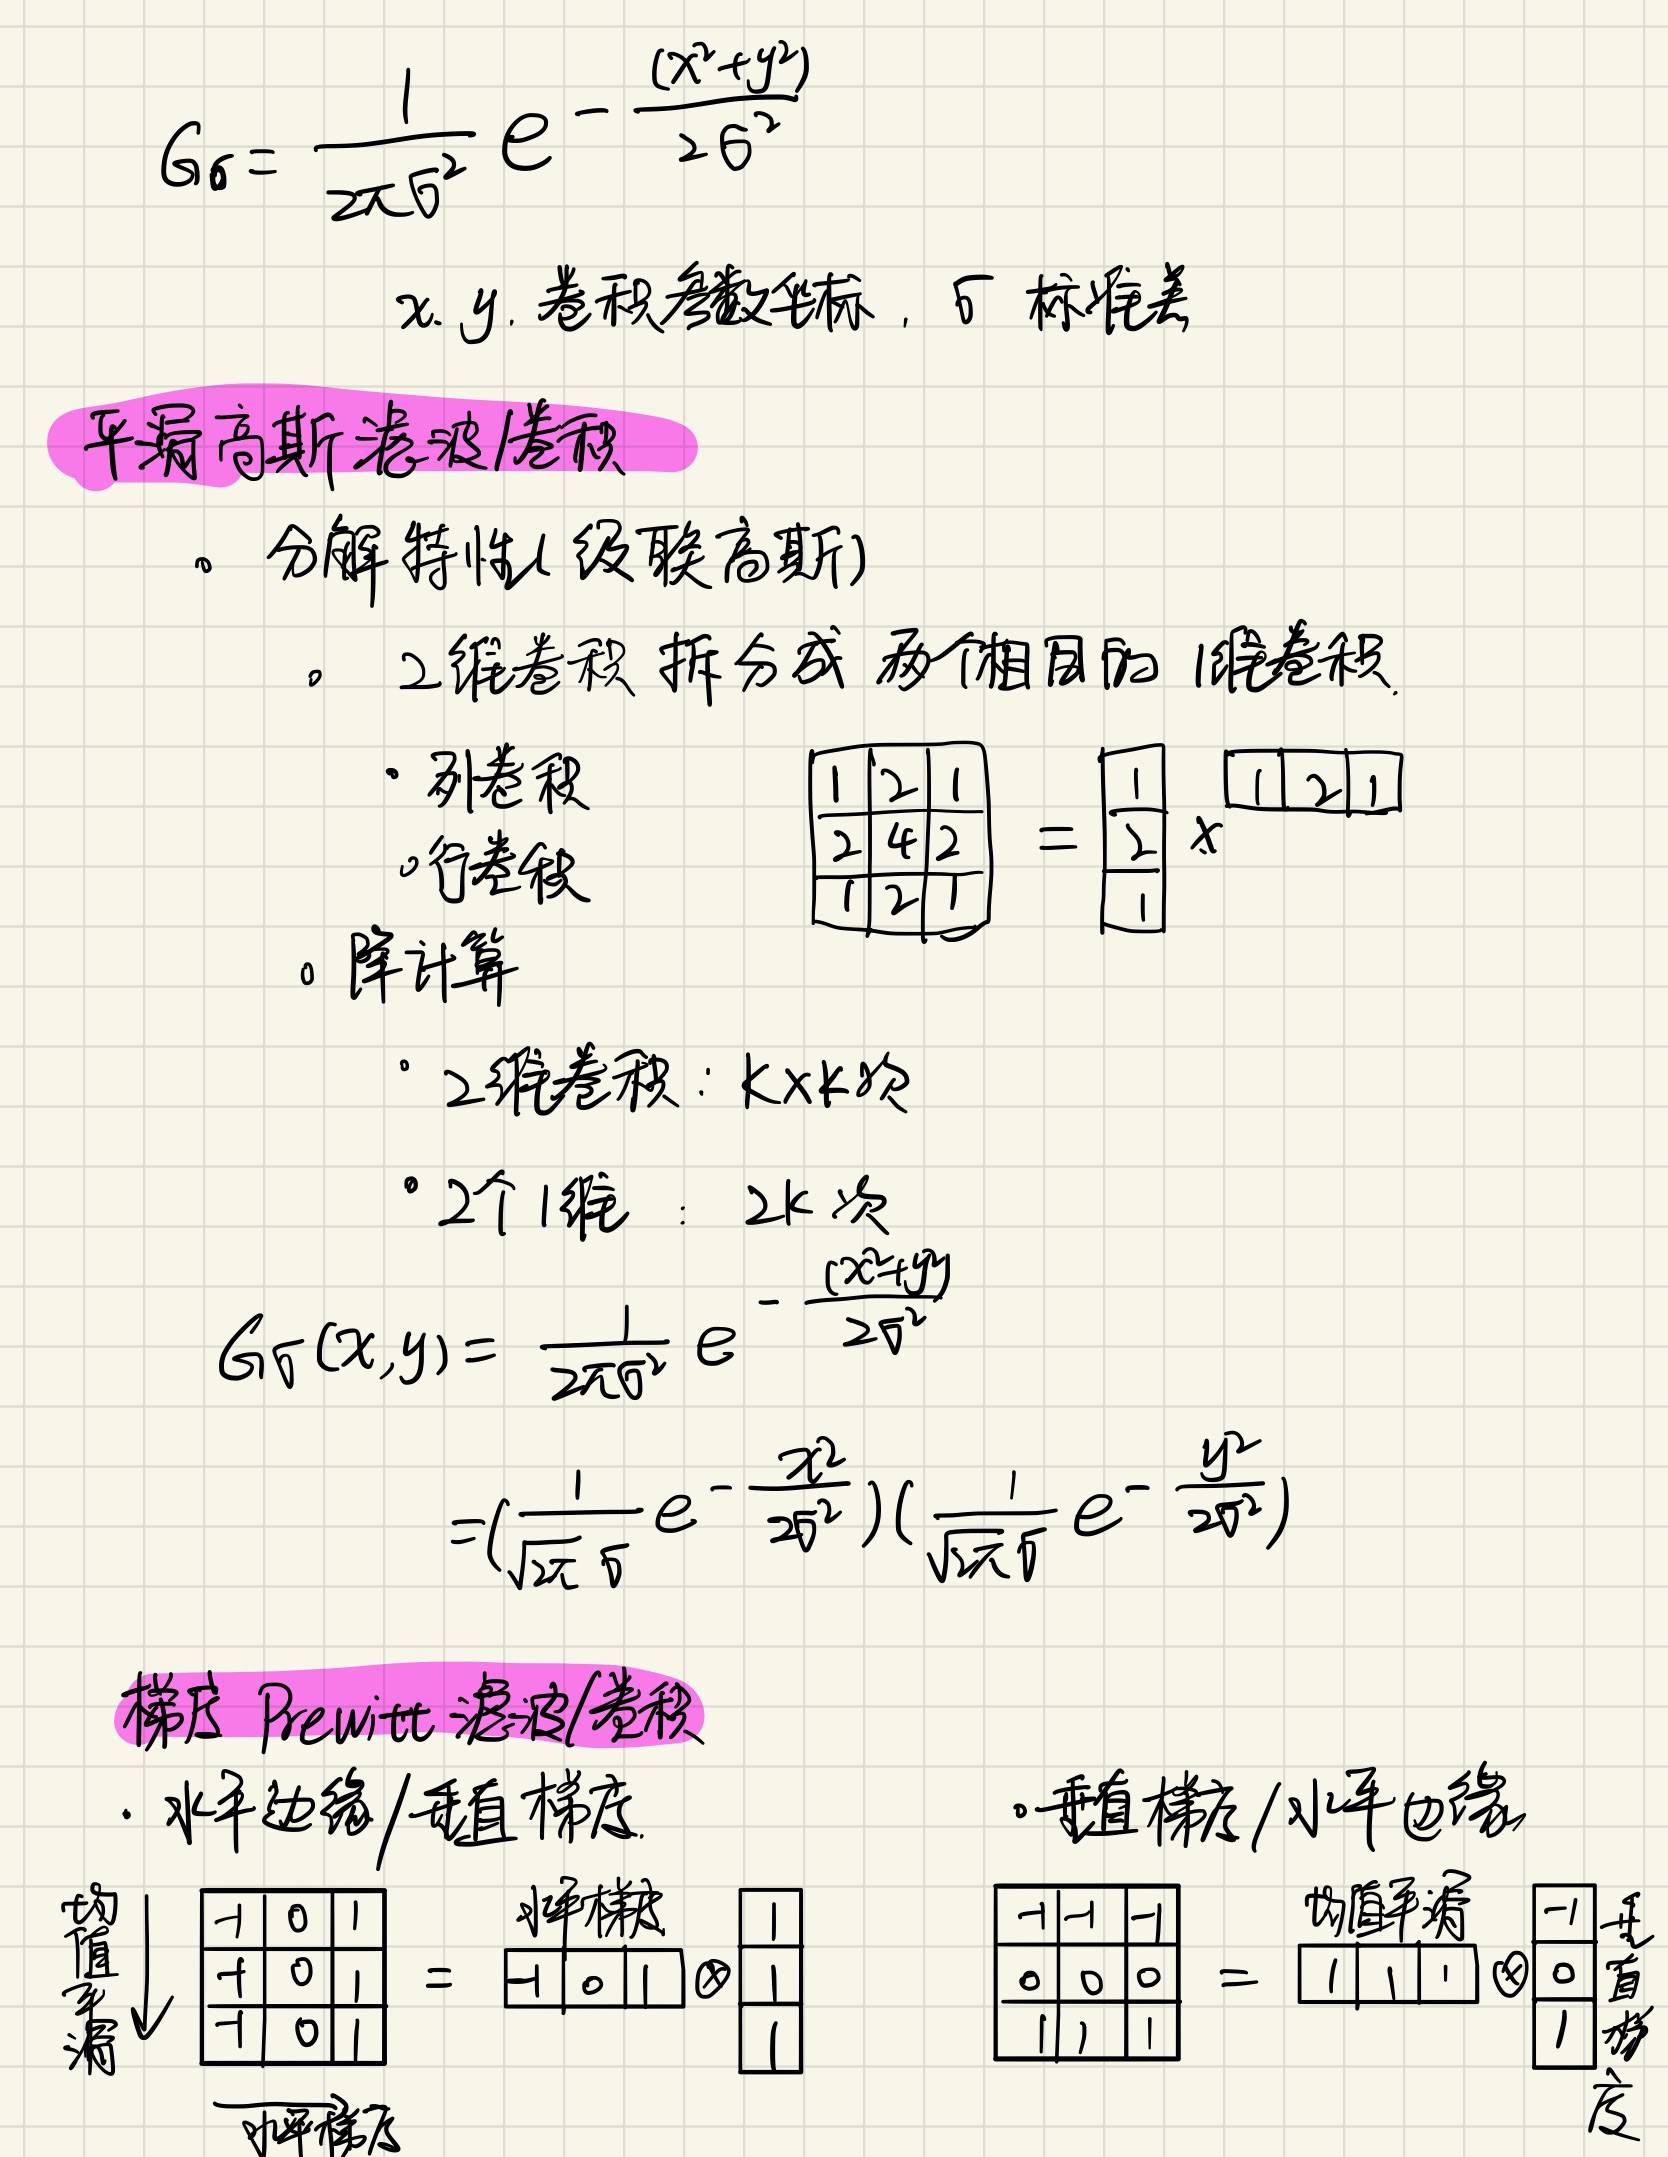 Gσ = 1/(2πσ²) e^(-(x²+y²)/(2σ²))
x. y. 卷积参数坐标, σ 标准差
平滑高斯滤波/卷积
。分解特性(级联高斯)
。2维卷积 拆分成 两个相同的 1维卷积.
。列卷积
。行卷积
1 2 1
2 4 2
1 2 1
=
1
2
1
×
1 2 1
。降计算
。2维卷积: K×K次
。2个1维: 2K 次
Gσ(x,y) = 1/(2πσ²) e^(-(x²+y²)/(2σ²))
=(1/(√2π σ) e^(-x²/(2σ²)))(1/(√2π σ) e^(-y²/(2σ²)))
梯度 Prewitt 滤波/卷积
· 水平边缘/垂直梯度.
均值平滑
-1 0 1
-1 0 1
-1 0 1
水平梯度
=
水平梯度
-1 0 1
⊗
1
1
1
。垂直梯度/水平边缘
-1 -1 -1
0 0 0
1 1 1
=
均值平滑
1 1 1
⊗
-1
0
1
垂直梯度